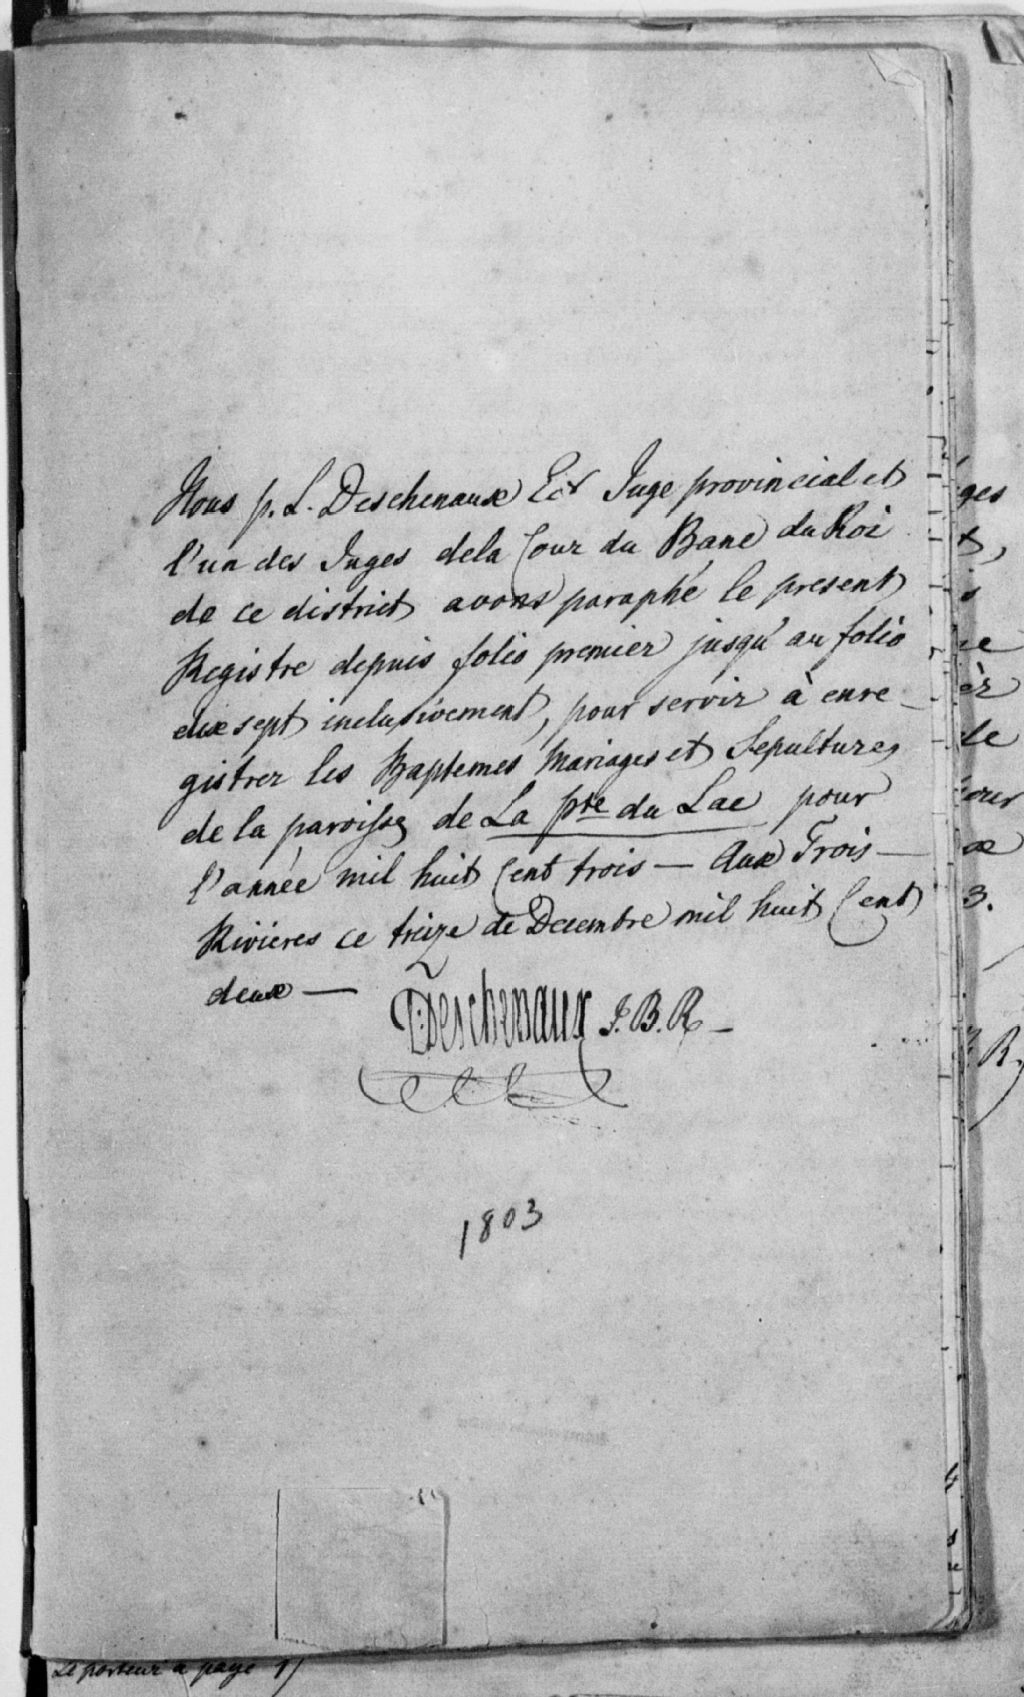 Nous p. L. Deschenaux Ecr Juge provincial et
l'un des Juges dela Cour du Banc du Roi
de ce district avons paraphé le present
Registre depuis folio premier jusqu'au folio
dix sept inclusivement, pour servir à enre-
gistrer les Baptemes Mariages et Sepultures
de la paroisse de La Pte du Lac pour
l'année mil huit Cent trois — Aux Trois —
Rivieres ce treize de Decembre mil huit Cent
deux —
Deschenaux J.B.R —
1803
Le porteur a paye
ges
t,
is
ue
èr
de
our
x
3.
R.